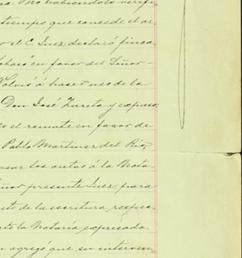 no habiéndolo verifi
tiempo que concede el ar
r el C. Juez, declaró finca
en favor del Señor
Volvió á hacer uso de la
Don José Zurita y expuso
el remate en favor de
Pablo Martínez del Río,
sar los autos á la Nota
señor presente Juez para
to de la escritura respec
te la Notaría expresada.
n agregó que su interven